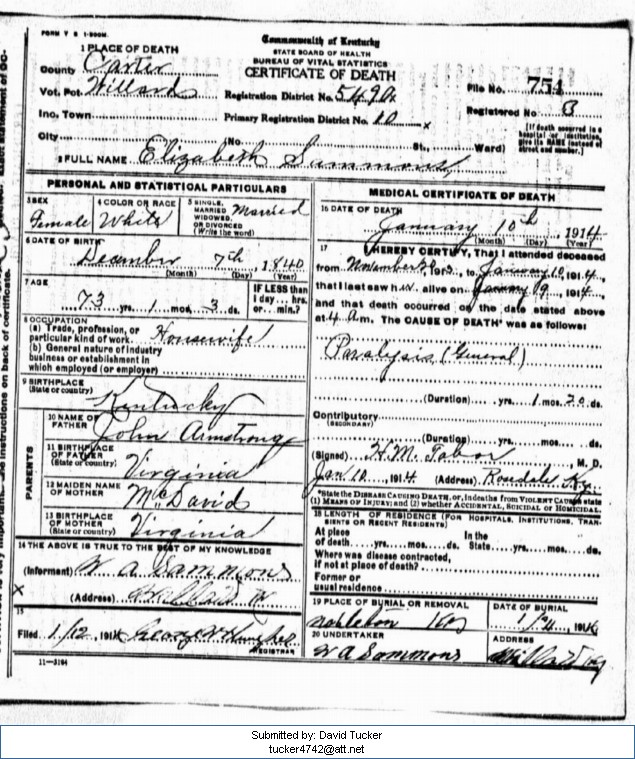 FORM V S 1-500M.
Commonwealth of Kentucky
STATE BOARD OF HEALTH
BUREAU OF VITAL STATISTICS
CERTIFICATE OF DEATH
1 PLACE OF DEATH
County Carter
Vot. Pct. Willard
Registration District No. 5490
File No. 751
Inc. Town
Primary Registration District No. 10
Registered No. 3
City (No. St., Ward)
[If death occurred in a hospital or institution, give its NAME instead of street and number.]
2 FULL NAME Elizabeth Sammons
PERSONAL AND STATISTICAL PARTICULARS
3 SEX Female
4 COLOR OR RACE White
5 SINGLE, MARRIED WIDOWED, OR DIVORCED (Write the word) Married
6 DATE OF BIRTH
December 7th, 1840
(Month) (Day) (Year)
7 AGE
73 yrs. 1 mos. 3 ds.
IF LESS than 1 day... hrs. or... min.?
8 OCCUPATION
(a) Trade, profession, or particular kind of work Housewife
(b) General nature of industry
business or establishment in
which employed (or employer)
9 BIRTHPLACE
(State or country) Kentucky
PARENTS
10 NAME OF FATHER John Armstrong
11 BIRTHPLACE OF FATHER (State or country) Virginia
12 MAIDEN NAME OF MOTHER McDavid
13 BIRTHPLACE OF MOTHER (State or country) Virginia
14 THE ABOVE IS TRUE TO THE BEST OF MY KNOWLEDGE
(Informant) W A Sammons
(Address) Willard Ky
15
Filed 1/12, 1914 George
REGISTRAR
11-3184
MEDICAL CERTIFICATE OF DEATH
16 DATE OF DEATH
January 10th, 1914
(Month) (Day) (Year)
17 I HEREBY CERTIFY, That I attended deceased
from November, to January 10, 1914,
that I last saw her alive on January 9, 1914,
and that death occurred on the date stated above
at 4 a.m. The CAUSE OF DEATH* was as follows:
Paralysis (General)
(Duration) yrs. 1 mos. 20 ds.
Contributory
(SECONDARY)
(Duration) yrs. mos. ds.
(Signed) H.M. Tabor, M. D.
Jan 10, 1914 (Address) Rosedale Ky.
*State the DISEASE CAUSING DEATH, or, in deaths from VIOLENT CAUSES state
(1) MEANS OF INJURY; and (2) whether ACCIDENTAL, SUICIDAL or HOMICIDAL.
18 LENGTH OF RESIDENCE (FOR HOSPITALS, INSTITUTIONS, TRAN-
SIENTS OR RECENT RESIDENTS)
At place of death yrs. mos. ds. In the State yrs. mos. ds.
Where was disease contracted,
if not at place of death?
Former or
usual residence
19 PLACE OF BURIAL OR REMOVAL
DATE OF BURIAL
20 UNDERTAKER
ADDRESS
W A Sammons
Willard Ky
Submitted by: David Tucker
tucker4742@att.net